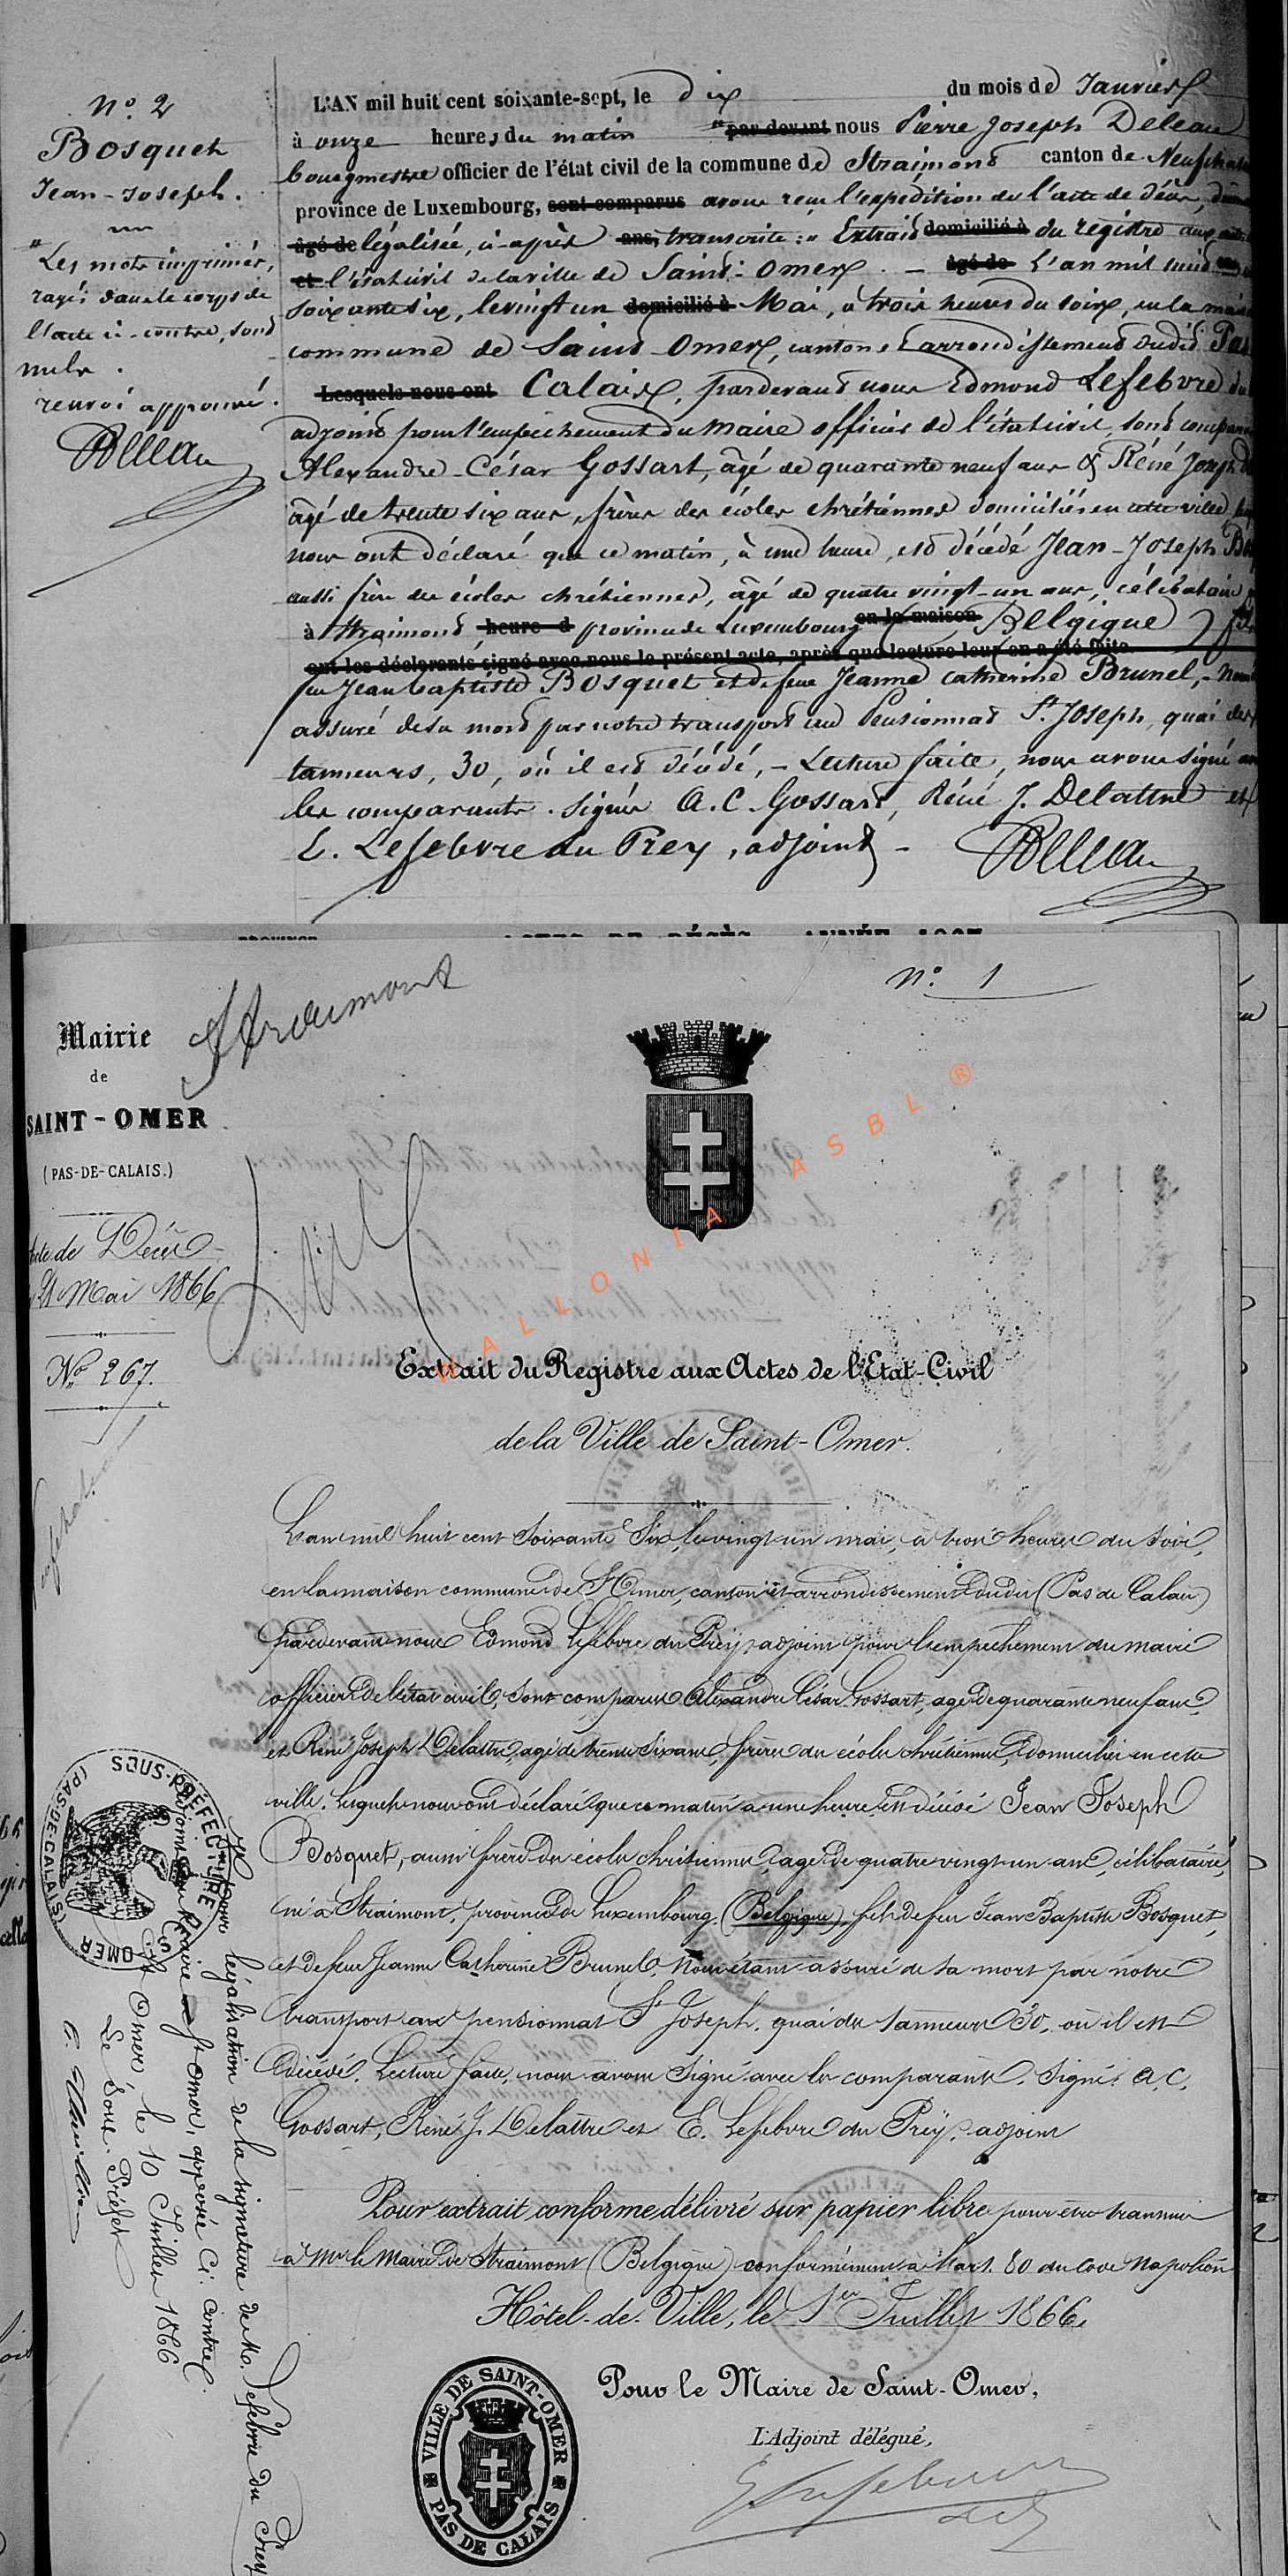 N.º 2
Bosquet
Jean-Joseph.
Les mots imprimés,
rayés dans le corps de
l'acte ci-contre, sont
nuls.
renvoi approuvé.
L'AN mil huit cent soixante-sept, le dix du mois de Janvier
à onze heures du matin " par devant nous Pierre Joseph Deleau
bourgmestre officier de l'état civil de la commune de Straimont canton de Neufchat
province de Luxembourg, sont comparus avons reçu l'expédition de l'acte de décès, dûm
âgé de légalisée, ci-après ans, transcrite : " Extrait domicilié à du registre aux actes
et l'état civil de la ville de Saint-Omer. — âgé de L'an mil huit cent
soixante six, le vingt un domicilié à Mai, à trois heures du soir, en la mais
commune de Saint Omer, canton & arrondissement dudit Pas
Lesquels nous ont Calais, pardevant nous Edmond Lefebvre du
adjoint pour l'empêchement du Maire officier de l'état civil, sont comparus
Alexandre-César Gossart, âgé de quarante neuf ans & Réné Joseph D
âgé de trente six ans, frères des écoles chrétiennes domiciliés en cette ville,
nous ont déclaré que ce matin, à une heure, est décédé Jean-Joseph Bos
aussi frère des écoles chrétiennes, âgé de quatre vingt-un ans, célibataire,
à Straimont heure d province de Luxembourg en la maison (Belgique) fils
ont les déclarants signé avec nous le présent acte, après que lecture leur en a été faite.
feu Jean baptiste Bosquet et de feue Jeanne catherine Brunel, - Nous
assuré de sa mort par notre transport au Pensionnat St. Joseph, quai des
tanneurs, 30, où il est décédé, - Lecture faite, nous avons signé av
les comparants. Signés A. C. Gossart, Réné J. Delattre et
E. Lefebvre du Prey, adjoint -
Deleau
N.º 1
Straimont
Mairie
de
SAINT-OMER
(PAS-DE-CALAIS.)
Acte de Décès
21 Mai 1866
Nº 267.
WALLONIA ASBL ®
Extrait du Registre aux Actes de l'Etat-Civil
de la Ville de Saint-Omer.
L'an mil huit cent soixante Six, le vingt un mai, à trois heures du soir,
en la maison commune de St Omer, canton et arrondissement dudit (Pas de Calais)
pardevant nous Edmond Lefebvre du Prey, adjoint pour l'empêchement du maire
officier de l'état civil, sont comparus Alexandre César Gossart, agé de quarante neuf ans,
et René Joseph Delattre, agé de trente six ans, frères des écoles chrétiennes, domiciliés en cette
ville. Lesquels nous ont déclaré que ce matin à une heure est décédé Jean Joseph
Bosquet, aussi frère des écoles chrétiennes, agé de quatre vingt un ans, célibataire,
né à Straimont, province de Luxembourg (Belgique), fils de feu Jean Baptiste Bosquet,
et de feue Jeanne Catherine Brunel, Nous étant assuré de sa mort par notre
transport au pensionnat St Joseph, quai des tanneurs 30, où il est
décédé. Lecture faite, nous avons signé avec les comparants. Signé: A. C.
Gossart, René J. Delattre et E. Lefebvre du Prey, adjoint
Pour extrait conforme délivré sur papier libre pour être transmis
à Mr le Maire de Straimont (Belgique) conformément à l'art. 80 du Code Napoléon
Hôtel-de-Ville, le 1er Juillet 1866.
Pour le Maire de Saint-Omer,
L'Adjoint délégué,
VILLE DE SAINT-OMER
PAS DE CALAIS
SOUS-PRÉFECTURE
ST OMER
(PAS-DE-CALAIS)
Vu pour légalisation de la signature de Mr. Lefebvre du Prey
adjoint au Maire de St Omer, apposée ci-contre.
St Omer, le 10 Juillet 1866
Le Sous-Préfet